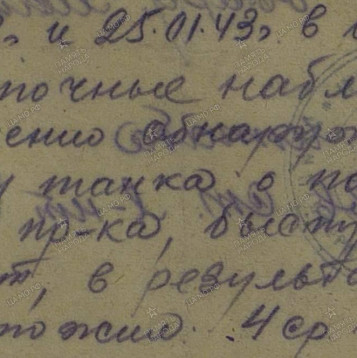 и 25.01.43, в
точные набл
ению обнаруж
танка в по
пр-ка, высту
т, в результа
тожил. 4 ср